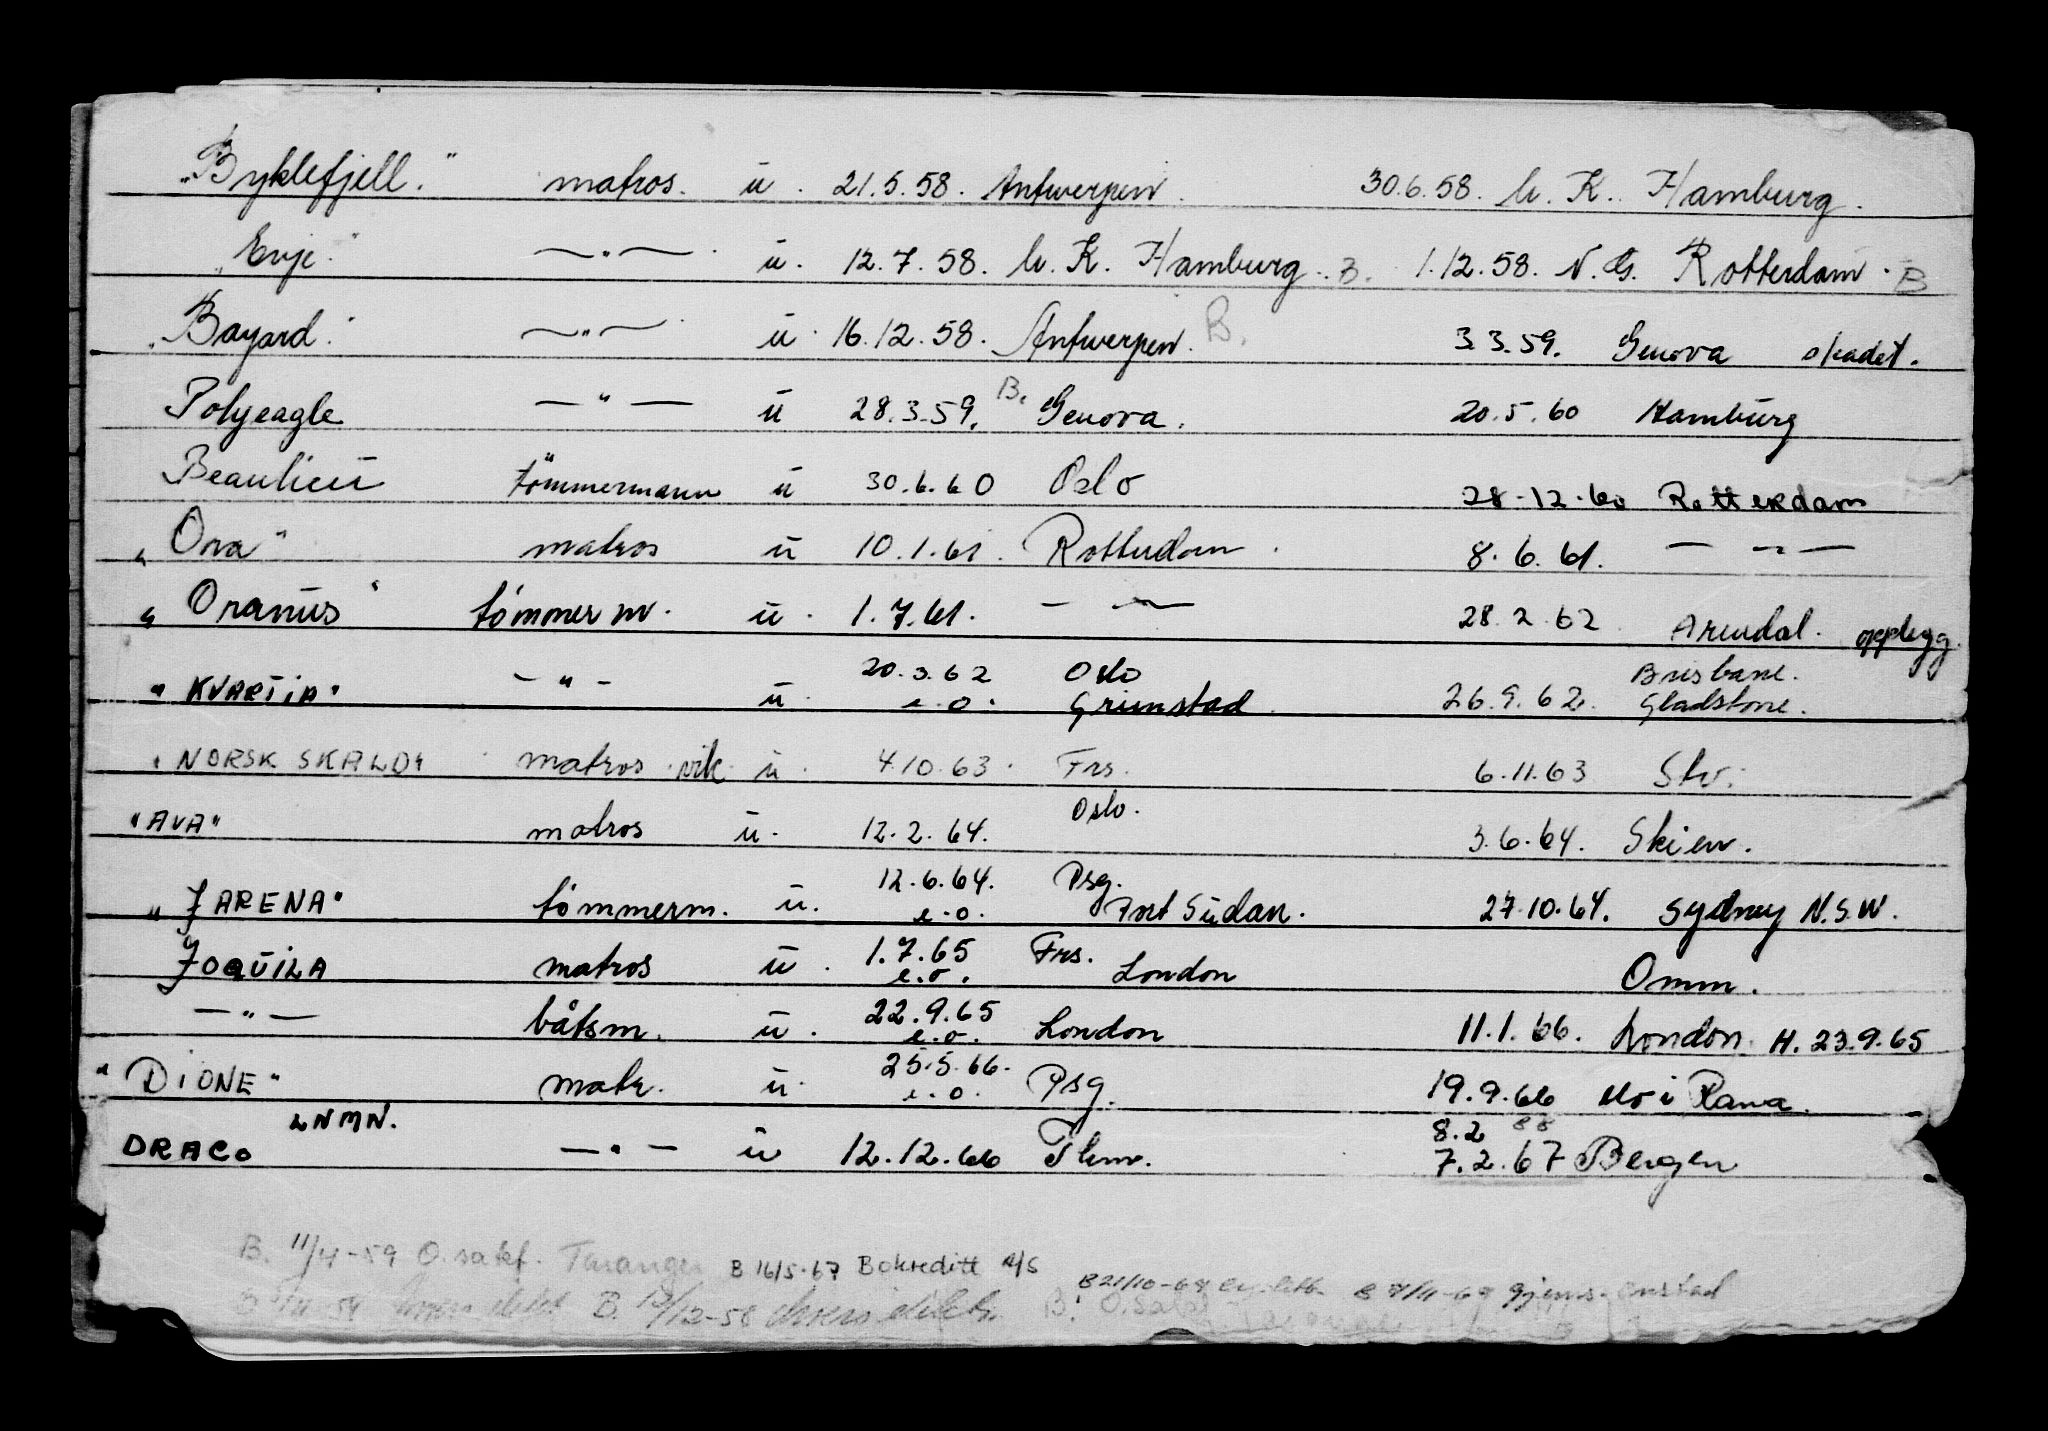 "Byklefjell." matros. u. 21.5.58. Antwerpen. 30.6.58. h. K. Hamburg.
"Evje." —"— u. 12.7.58. h. K. Hamburg. B. 1.12.58. N. G. Rotterdam. B
"Bayard." —"— u. 16.12.58. Antwerpen. B. 3.3.59. Genova skadet.
Polyeagle —"— u 28.3.59. B. Genova. 20.5.60 Hamburg
Beaulieu tömmermann u 30.6.60 Oslo 28-12-60 Rotterdam
"Ora" matros u 10.1.61. Rotterdam. 8.6.61. —"—
"Oranus" tömmerm. u. 1.7.61. —"— 28.2.62 Arendal. opplegg.
20.3.62 Oslo Brisbane.
"KVARTIA" —"— u. e.o. Grimstad. 26.9.62. Gladstone.
"NORSK SKALD" matros vik u. 4.10.63. Frs. 6.11.63
"AVA" matros u. 12.2.64. Oslo. 3.6.64. Skien.
12.6.64. Psg.
"JARENA" tömmerm. u. e.o. Port Sudan. 27.10.64. Sydney N.S.W.
1.7.65 Frs.
JOQUILA matros u. e.o. London Omm.
22.9.65
—"— båtsm. u. e.o. London 11.1.66. London. H. 23.9.65
25.5.66.
"DIONE" matr. u. e.o. Psg. 19.9.66 Mo i Rana.
LNMN. 8.2
DRACO —"— u 12.12.66 7.2.67 Bergen
B. 11/4-59 O. Taranger B 16/5-67 Bokreditt A/S
B 21/10-68 B gjens. Onstad
B. 12/12-58 B.